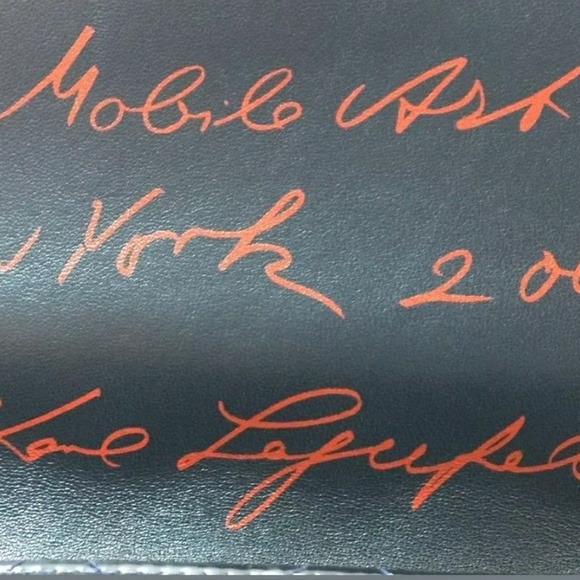 Mobile Art
w York 200
Karl Lagerfel